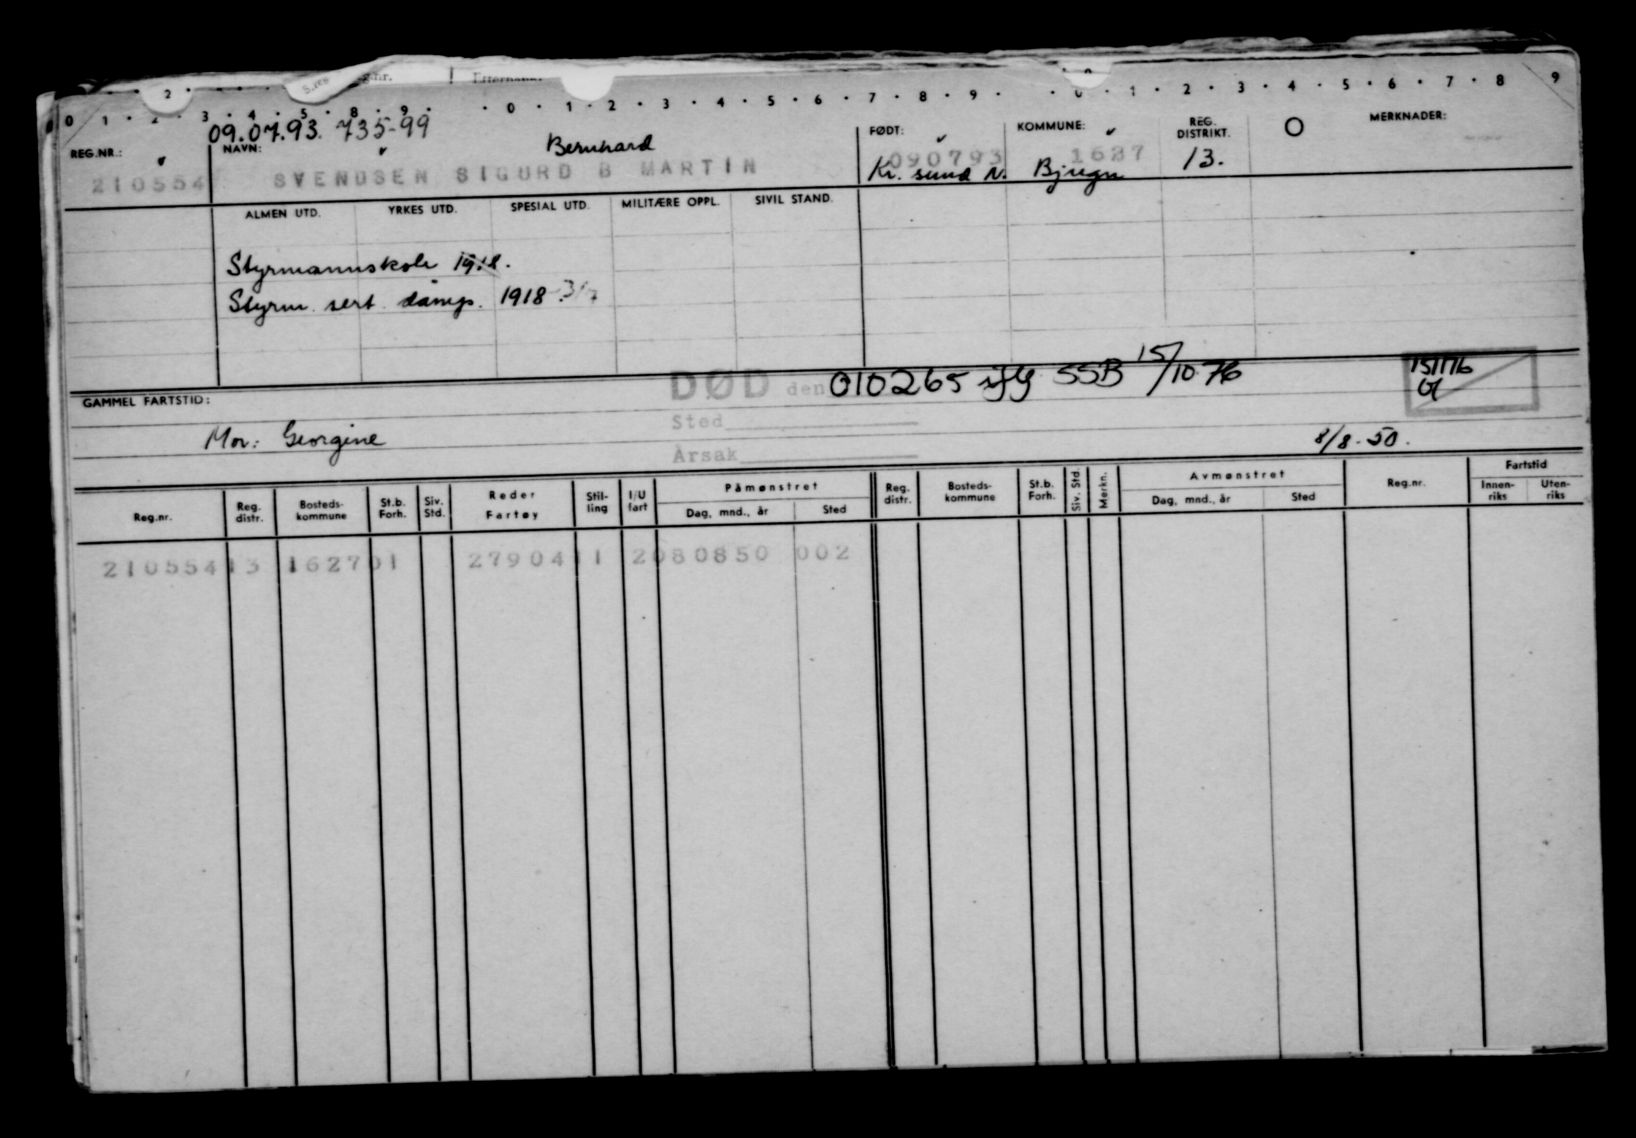 0 1 2 3 4 5 8 9 0 1 2 3 4 5 6 7 8 9 0 1 2 3 4 5 6 7 8 9
09.07.93. 735-99
REG.NR.: NAVN: Bernhard FØDT: KOMMUNE: REG. DISTRIKT. O MERKNADER:
210554 SVENDSEN SIGURD B MARTIN 090793 1627 13.
Kr. sund N. Bjugn
ALMEN UTD. YRKES UTD. SPESIAL UTD. MILITÆRE OPPL. SIVIL STAND.
Styrmannskole 1918.
Styrm. sert. damps. 1918
DØD den 010265 iflg SSB 15/10-76
GAMMEL FARTSTID:
Sted
Mor: Georgine
8/8-50.
Årsak
Reg.nr. Reg. distr. Bosteds-kommune St.b. Forh. Siv. Std. Reder Fartøy Stil-ling I/U fart Påmønstret Dag, mnd., år Sted Reg. distr. Bosteds-kommune St.b. Forh. Siv. Std. Merkn. Avmønstret Dag, mnd., år Sted Reg.nr. Fartstid Innen-riks Uten-riks
210554 13 1627 01 279041 1 2080850 002